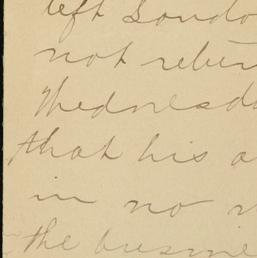 left Londo
not retur
Wednesda
that his a
in no
the busine